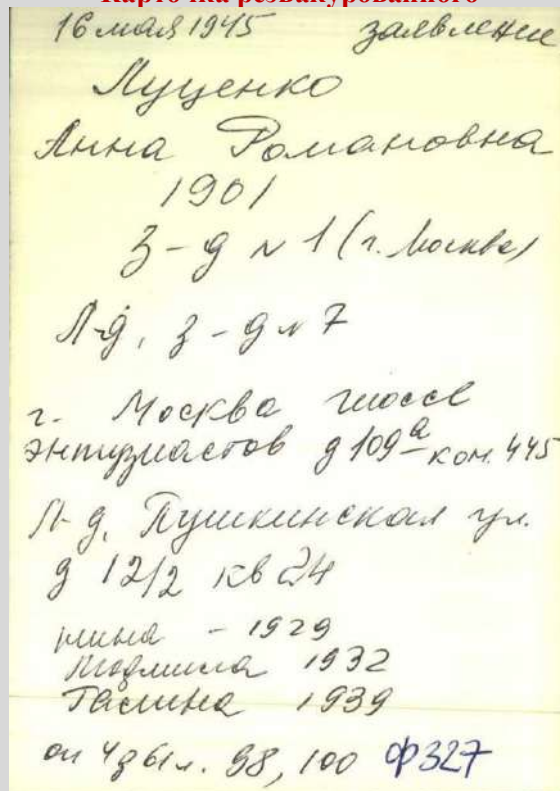 Карточка реэвакуированного
16 мая 1945 заявление
Луценко
Анна Романовна
1901
З-д № 1 (г. Москва)
Л-д, з-д № 7
г. Москва шоссе
энтузиастов д 109а ком. 445
Л-д, Пушкинская ул.
д 12/2 кв 24
- 1929
Людмила 1932
Галина 1939
оп 4 д 61 л. 98, 100 ф 327